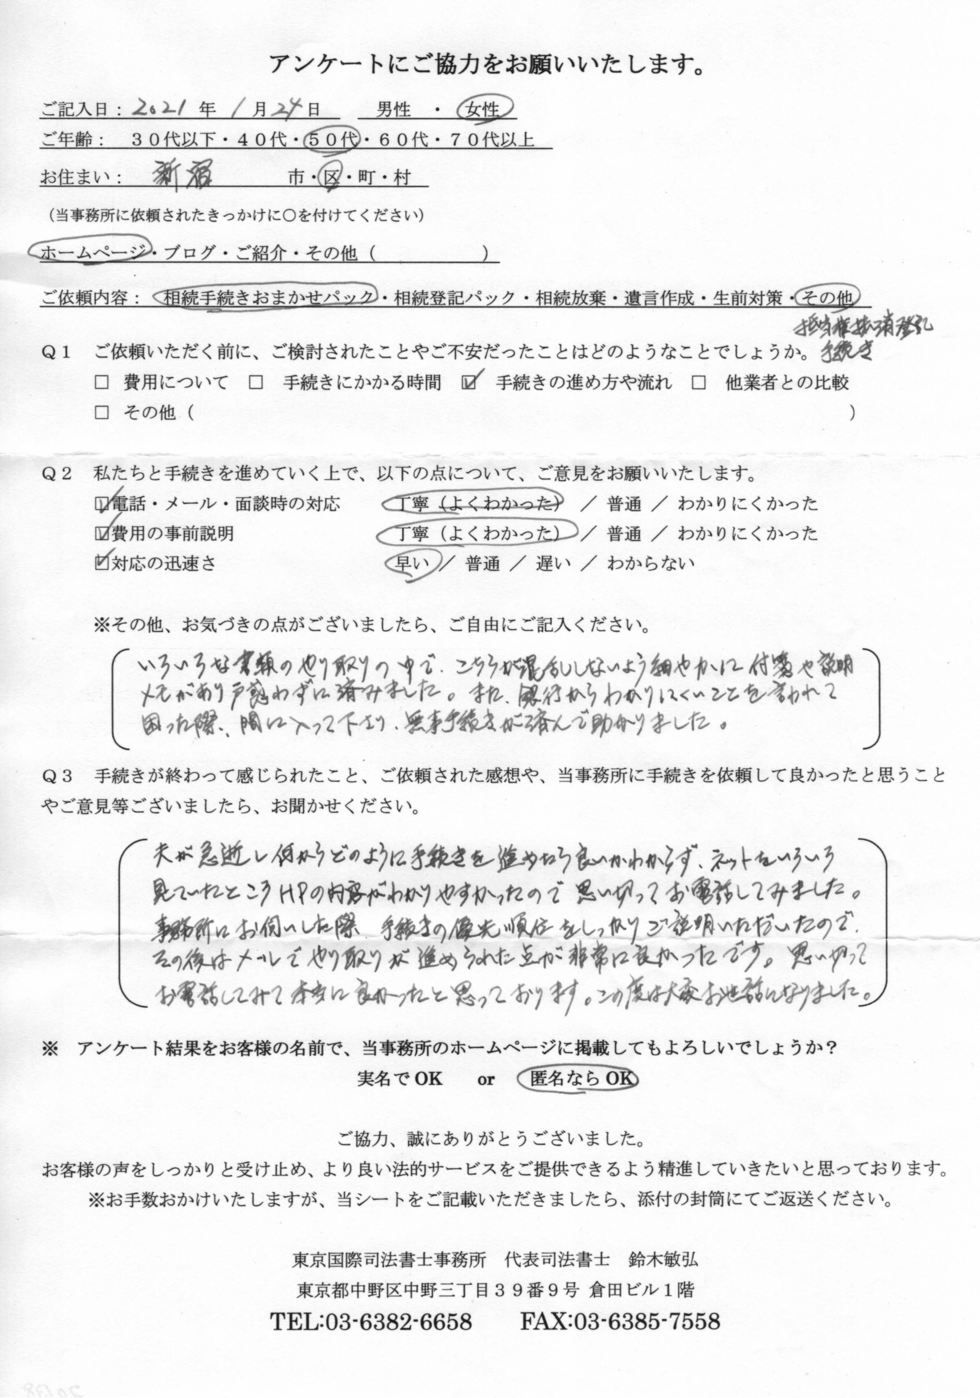 アンケートにご協力をお願いいたします。
ご記入日： 2021 年 1 月 24 日　男性 ・ 女性
ご年齢： ３０代以下・４０代・５０代・６０代・７０代以上
お住まい： 新宿 市・区・町・村
（当事務所に依頼されたきっかけに○を付けてください）
ホームページ・ブログ・ご紹介・その他（　　　　　　）
ご依頼内容： 相続手続きおまかせパック・相続登記パック・相続放棄・遺言作成・生前対策・その他
抵当権抹消登記
手続き
Ｑ１　ご依頼いただく前に、ご検討されたことやご不安だったことはどのようなことでしょうか。
□ 費用について □ 手続きにかかる時間 ☑ 手続きの進め方や流れ □ 他業者との比較
□ その他（　　　　　　　　　　　　　　　　　　　　）
Ｑ２　私たちと手続きを進めていく上で、以下の点について、ご意見をお願いいたします。
☑電話・メール・面談時の対応　丁寧（よくわかった）／ 普通 ／ わかりにくかった
☑費用の事前説明　丁寧（よくわかった）／ 普通 ／ わかりにくかった
☑対応の迅速さ　早い ／ 普通 ／ 遅い ／ わからない
※その他、お気づきの点がございましたら、ご自由にご記入ください。
いろいろな書類のやり取りの中で、こちらが混乱しないよう細やかに付箋や説明
メモがあり戸惑わずに済みました。また、銀行からわかりにくいことを言われて
困った際、間に入って下さり、無事手続きが済んで助かりました。
Ｑ３　手続きが終わって感じられたこと、ご依頼された感想や、当事務所に手続きを依頼して良かったと思うこと
やご意見等ございましたら、お聞かせください。
夫が急逝し何からどのように手続きを進めたら良いかわからず、ネットをいろいろ
見ていたところHPの内容がわかりやすかったので思い切ってお電話してみました。
事務所にお伺いした際、手続きの優先順位をしっかりご説明いただいたので、
その後はメールでやり取りが進められた点が非常に良かったです。思い切って
お電話してみて本当に良かったと思っております。この度は大変お世話になりました。
※　アンケート結果をお客様の名前で、当事務所のホームページに掲載してもよろしいでしょうか？
実名で OK　or　匿名なら OK
ご協力、誠にありがとうございました。
お客様の声をしっかりと受け止め、より良い法的サービスをご提供できるよう精進していきたいと思っております。
※お手数おかけいたしますが、当シートをご記載いただきましたら、添付の封筒にてご返送ください。
東京国際司法書士事務所　代表司法書士　鈴木敏弘
東京都中野区中野三丁目３９番９号 倉田ビル１階
TEL:03-6382-6658　FAX:03-6385-7558